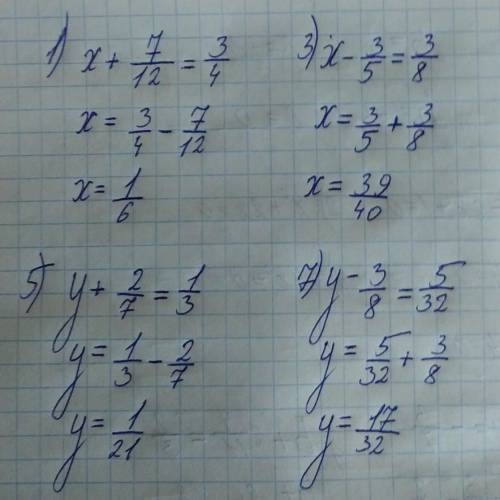 1) x + 7/12 = 3/4
x = 3/4 - 7/12
x = 1/6
3) x - 3/5 = 3/8
x = 3/5 + 3/8
x = 39/40
5) y + 2/7 = 1/3
y = 1/3 - 2/7
y = 1/21
7) y - 3/8 = 5/32
y = 5/32 + 3/8
y = 17/32